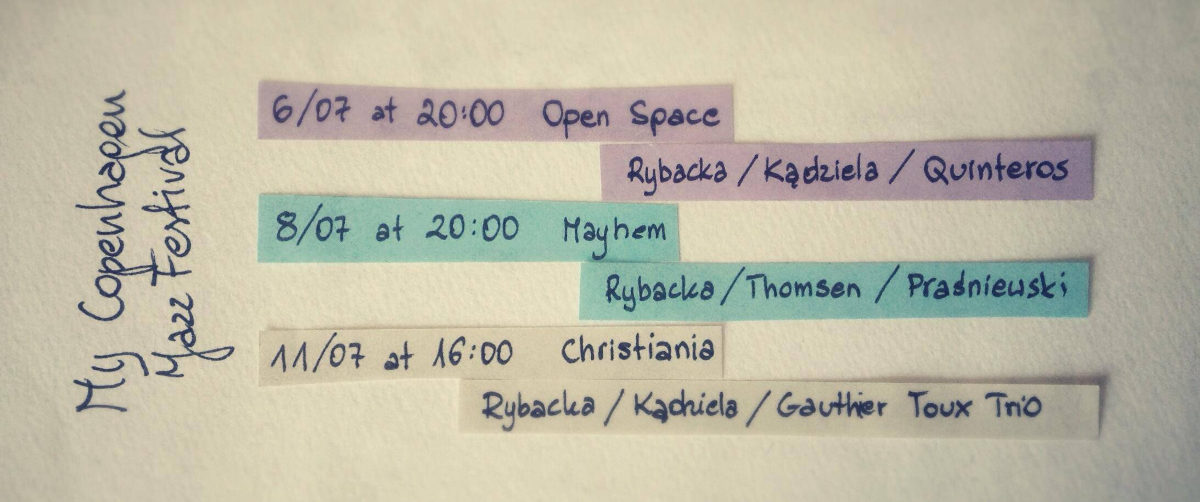 My Copenhagen
Jazz Festival
6/07 at 20:00 Open Space
Rybacka / Kądziela / Quinteros
8/07 at 20:00 Mayhem
Rybacka / Thomsen / Praśniewski
11/07 at 16:00 Christiania
Rybacka / Kądziela / Gauthier Toux Trio